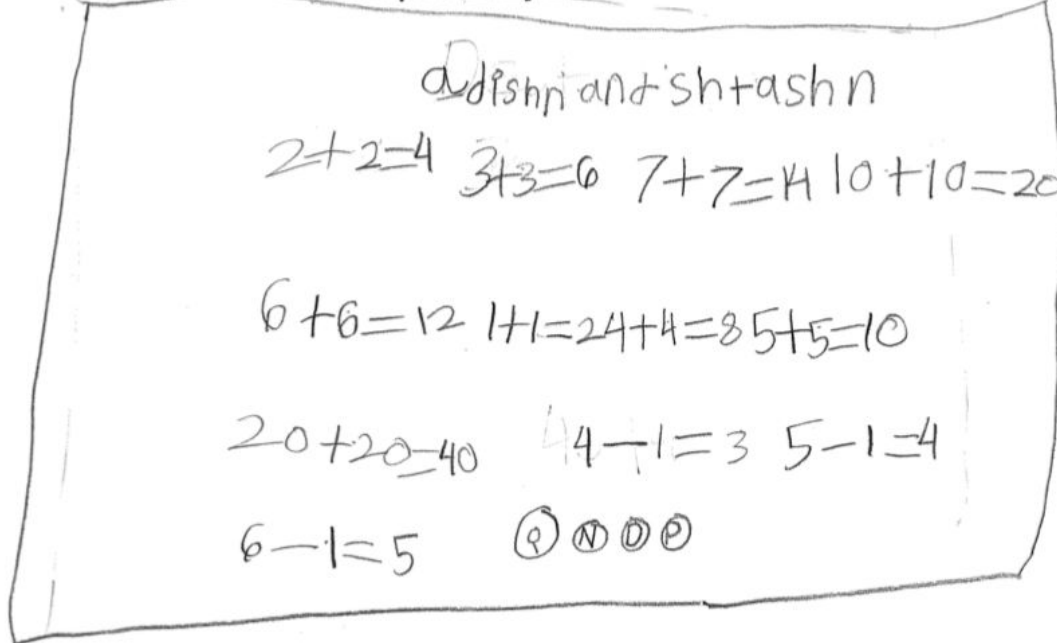 aDdishn and shtashn
2+2=4 3+3=6 7+7=14 10+10=20
6+6=12 1+1=2 4+4=8 5+5=10
20+20=40 4-1=3 5-1=4
6-1=5 Q N D P